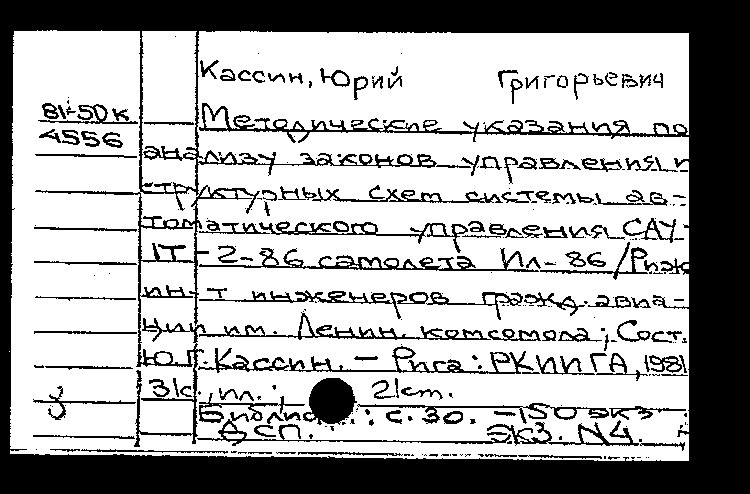 Кассин, Юрий Григорьевич
81-50к
4556
Методические указания по
анализу законов управления и
структурных схем системы ав-
томатического управления САУ-
1Т-2-86 самолета Ил-86 / Рижс
ин-т инженеров гражд. авиа-
ции им. Ленин. комсомола; Сост.
Ю.Г. Кассин. - Рига: РКИИГА, 1981
31с., ил.; 21см.
: с. 30. - 150 экз.
ДСП. Экз. N4.